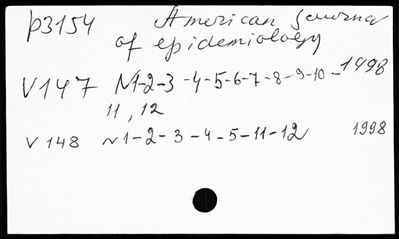 p3154 American Journal
of epidemiology
V147 N1-2-3-4-5-6-7-8-9-10- 1998
11, 12
V 148 N1-2-3-4-5-11-12 1998